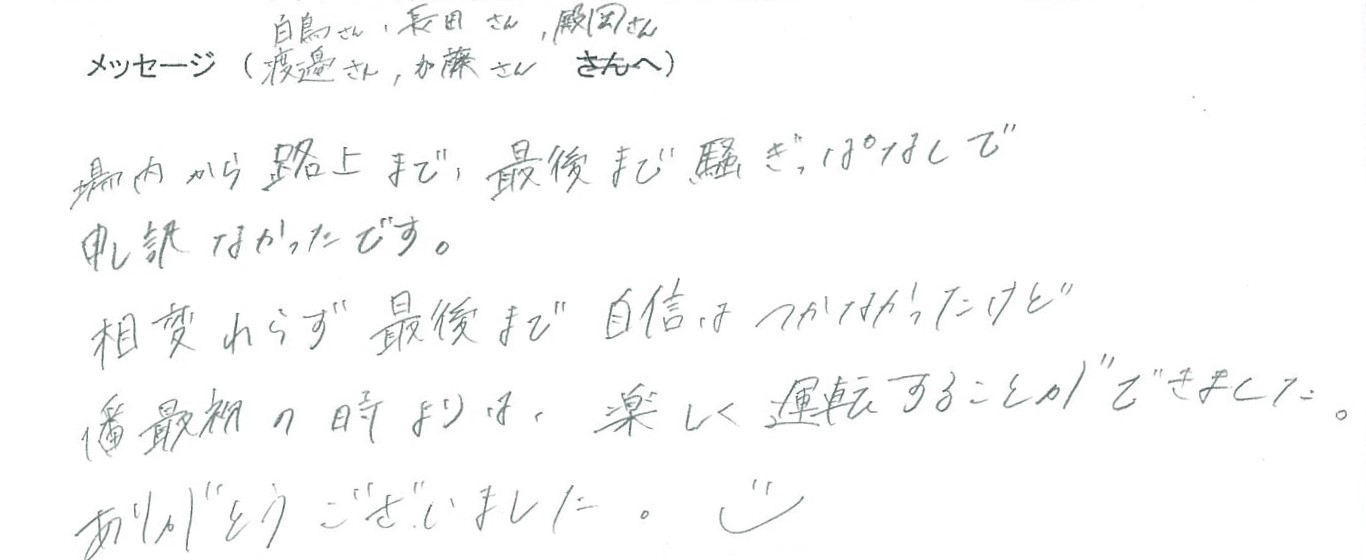 白鳥さん、長田さん、殿岡さん
メッセージ（渡邉さん、加藤さん さんへ）
場内から路上まで、最後まで騒ぎっぱなしで
申し訳なかったです。
相変わらず最後まで自信はつかなかったけど
最初の時よりは、楽しく運転することができました。
ありがとうございました。